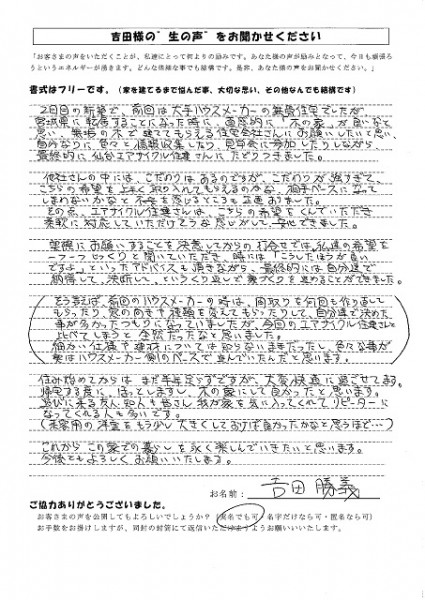 吉田様の゛生の声゛をお聞かせください
「お客さまの声をいただくことが、私達にとって何よりの励みです。あなた様の声が励みとなって、今日も頑張ろ
うというエネルギーが湧きます。どんな些細な事でも結構です。是非、あなた様の声をお聞かせください。」
書式はフリーです。（家を建てるまで悩んだ事、大切な思い、その他なんでも結構です）
2回目の新築で、前回は大手ハウスメーカーの住宅でしたが、
宮城県に転居することになった時に、直感的に「木の家」が良いなと
思い、無垢の木で建ててもらえる住宅会社さんにお願いしたいと思い、
自分なりに色々と情報収集したり、見学会に参加したりしながら、
最終的に仙台エアサイクル住宅さんにたどりつきました。
他社さんの中には、こだわりはあるのですが、こだわりが強すぎて、
こちらの希望を上手く取り入れてもらえるのかな、相手ペースになって
しまわないかなと不安を感じるところも正直ありました。
その点、エアサイクル住宅さんは、こちらの希望をくんでいただき
柔軟に対応していただけそうな感じがして、安心できました。
実際にお願いすることを決意してからの打合せでは、私達の希望を
一つ一つじっくりと聞いていただき、時には「こうしたほうが良い
ですよ」といったアドバイスも頂きながら、最終的には自分達で
納得して、決断して、というくり返しで家づくりを進めることができました。
そう言えば、前回のハウスメーカーの時は、間取りを何回も作り直して
もらったり、窓の向きや種類を変えてもらったりして、自分達で決めた
事が多かったつもりになっていましたが、今回のエアサイクル住宅さんと
比べてしまうと全然だったなと思いました。
細かい仕様や建材については知らないままだったし、色々な事が
実はハウスメーカー側のペースで進んでいたんだと思います。
住み始めてからはまだ半年足らずですが、大変快適に過ごせてます。
帰宅する度に、ほっとしますし、木の家にして良かったと思います。
遊びに来る友人知人も皆さん我が家を気に入ってくれてリピーターに
なってくれる人も多いです。
（来客用の洋室をもう少し大きくしておけば良かったかなと思うほど…）
これからこの家での暮らしを永く楽しんでいきたいと思います。
今後ともよろしくお願いいたします。
お名前： 吉田 勝義
ご協力ありがとうございました。
お客さまの声を公開してもよろしいでしょうか？（実名でも可・名字だけなら可・匿名なら可）
お手数をお掛けしますが、同封の封筒にて返信いただけますようお願いいたします。